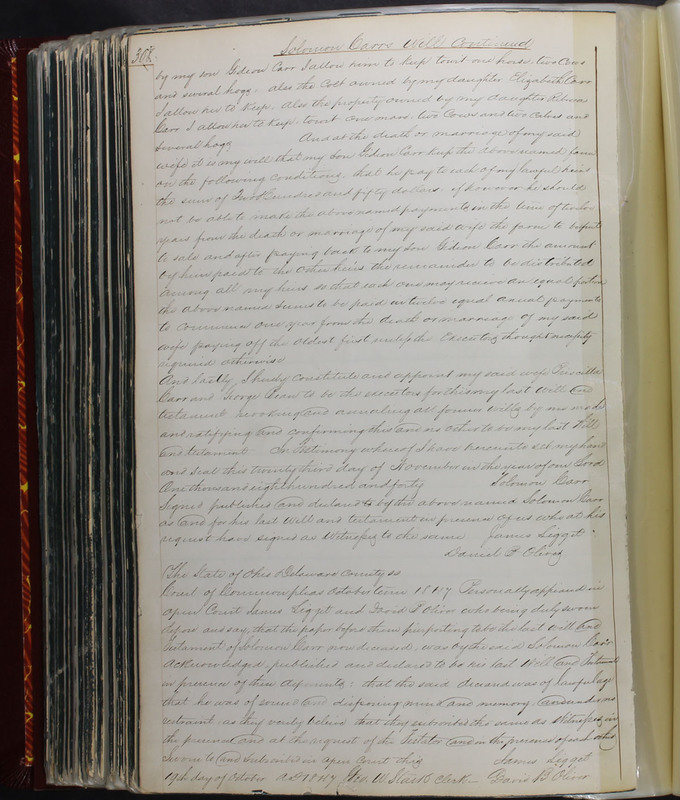 308
Solomon Carrs Will Continued
by my son Gideon Carr I allow him to keep towit one horse, two Cows
and several hogs, also the Colt owned by my daughter Elizabeth Carr
I allow her to keep. Also the property owned by my daughter Rebecca
Carr I allow her to keep, towit one mare, two Cows and two Calves and
several hogs And at the death or marriage of my said
wife it is my will that my Son Gideon Carr keep the above named farm
on the following conditions, that he pay to each of my lawful heirs
the sum of Two Hundred and fifty dollars. if however he should
not be able to make the above named payments in the time of twelve
years from the death or marriage of my said wife the farm to be put
to sale and after paying back to my son Gideon Carr the amount
by him paid to the other heirs the remainder to be distributed
among all my heirs so that each one may receive an equal portion
the above named sums to be paid in twelve equal anual payments
to commence one year from the death or marriage of my said
wife paying off the oldest first unless the Executors thought
required otherwise
And lastly, I hereby constitute and appoint my said wife Priscilla
Carr and George Bean to be the executors for this my last will and
testament revoking and annulling all former wills by me made
and ratifying and confirming this and no other to be my last Will
and testament In Testimony whereof I have hereunto set my hand
and seal this twenty third day of November in the year of our Lord
One thousand eight hundred and forty Solomon Carr
Signed published and declared by the above named Solomon Carr
as and for his last Will and testament in presence of us who at his
request have signed as Witnesses to the same. James Ligget
Daniel P Oliver
The State of Ohio Delaware County ss
Court of Common pleas October term 1847 Personally appeared in
open Court James Ligget and David P Oliver who being duly sworn
depose and say, that the paper before them purporting to be the last will and
Testament of Solomon Carr now deceased, was by the said Solomon Carr
acknowledged, published and declared to be his last Will and Testament
in presence of these deponents: that the said deceased was of lawful age
that he was of sound and disposing mind and memory and under no
restraint as they verily believe that they subscribed the same as Witnesses, in
the presence and at the request of the Testator and in the presence of each other
Sworn to and subscribed in open Court this James Ligget
19th day of October AD 1847 Geo. W. Stark Clerk David P Oliver